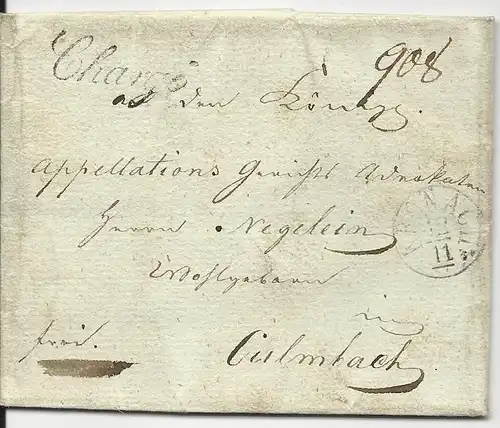 Chargé
908
an den Königl.
Appellations Gerichts Advokaten
Herrn Negelein
Wohlgeborn
in
frei.
Culmbach
11